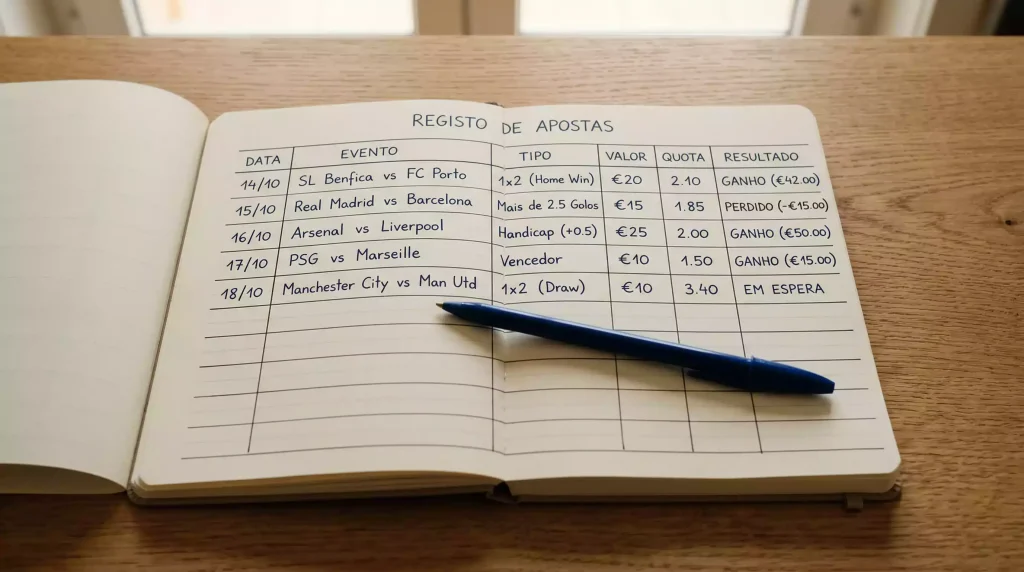 REGISTO DE APOSTAS
DATA EVENTO TIPO VALOR QUOTA RESULTADO
14/10 SL Benfica vs FC Porto 1x2 (Home Win) €20 2.10 GANHO (€42.00)
15/10 Real Madrid vs Barcelona Mais de 2.5 Golos €15 1.85 PERDIDO (-€15.00)
16/10 Arsenal vs Liverpool Handicap (+0.5) €25 2.00 GANHO (€50.00)
17/10 PSG vs Marseille Vencedor €10 1.50 GANHO (€15.00)
18/10 Manchester City vs Man Utd 1x2 (Draw) €10 3.40 EM ESPERA